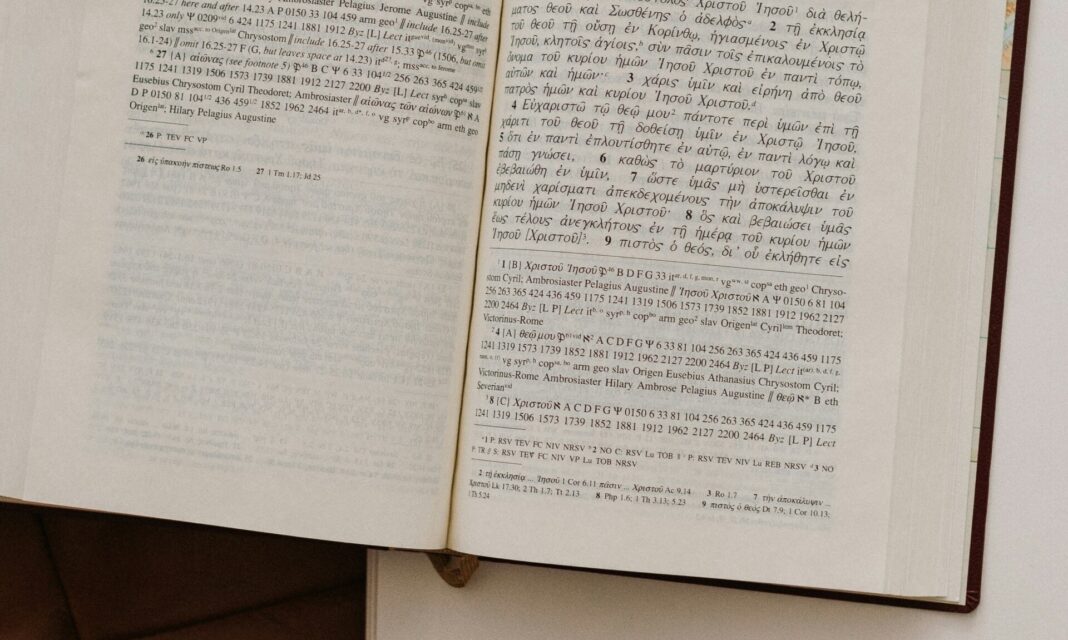 16.25-27 here and after 14.23 A P 0150 33 104 459 arm geo¹ // include
14.23 only Ψ 0209ᵛⁱᵈ 6 424 1175 1241 1881 1912 Byz [L] Lect
Chrysostom // include 16.25-27 after 15.33 𝔓⁴⁶ (1506, but omit
16.1-24) // omit 16.25-27 F (G, but leaves space at 14.23)
⁶ 27 {A} αἰῶνας (see footnote 5) 𝔓⁴⁶ B C Ψ 6 33 104¹ᐟ² 256 263 365 424 459¹ᐟ²
1175 1241 1319 1506 1573 1739 1881 1912 2127 2200 Byz [L] Lect
Eusebius Chrysostom Cyril Theodoret; Ambrosiaster // αἰῶνας τῶν αἰώνων 𝔓⁶¹ א A
D P 0150 81 104¹ᐟ² 436 459¹ᐟ² 1852 1962 2464 itᵃʳ, ᵇ, ᵈ*, ᶠ, ᵒ vg syrᵖ copᵇᵒ arm eth geo
Origenˡᵃᵗ; Hilary Pelagius Augustine
ᵃ 26 P: TEV FC VP
26 εἰς ὑπακοὴν πίστεως Ro 1.5 27 1 Tm 1.17; Jd 25
Χριστοῦ Ἰησοῦ¹ διὰ θελή-
ματος θεοῦ καὶ Σωσθένης ὁ ἀδελφὸςᵃ 2 τῇ ἐκκλησίᾳ
τοῦ θεοῦ τῇ οὔσῃ ἐν Κορίνθῳ, ἡγιασμένοις ἐν Χριστῷ
Ἰησοῦ, κλητοῖς ἁγίοις,ᵇ σὺν πᾶσιν τοῖς ἐπικαλουμένοις τὸ
ὄνομα τοῦ κυρίου ἡμῶν Ἰησοῦ Χριστοῦ ἐν παντὶ τόπῳ,
αὐτῶν καὶ ἡμῶν·ᶜ 3 χάρις ὑμῖν καὶ εἰρήνη ἀπὸ θεοῦ
πατρὸς ἡμῶν καὶ κυρίου Ἰησοῦ Χριστοῦ.ᵈ
4 Εὐχαριστῶ τῷ θεῷ μου² πάντοτε περὶ ὑμῶν ἐπὶ τῇ
χάριτι τοῦ θεοῦ τῇ δοθείσῃ ὑμῖν ἐν Χριστῷ Ἰησοῦ,
5 ὅτι ἐν παντὶ ἐπλουτίσθητε ἐν αὐτῷ, ἐν παντὶ λόγῳ καὶ
πάσῃ γνώσει, 6 καθὼς τὸ μαρτύριον τοῦ Χριστοῦ
ἐβεβαιώθη ἐν ὑμῖν, 7 ὥστε ὑμᾶς μὴ ὑστερεῖσθαι ἐν
μηδενὶ χαρίσματι ἀπεκδεχομένους τὴν ἀποκάλυψιν τοῦ
κυρίου ἡμῶν Ἰησοῦ Χριστοῦ· 8 ὃς καὶ βεβαιώσει ὑμᾶς
ἕως τέλους ἀνεγκλήτους ἐν τῇ ἡμέρᾳ τοῦ κυρίου ἡμῶν
Ἰησοῦ [Χριστοῦ]³. 9 πιστὸς ὁ θεός, δι’ οὗ ἐκλήθητε εἰς
¹ 1 {B} Χριστοῦ Ἰησοῦ 𝔓⁴⁶ B D F G 33 itᵃʳ, ᵈ, ᶠ, ᵍ, ᵐᵒⁿ, ʳ vgʷʷ, ˢᵗ copˢᵃ eth geo¹ Chryso-
stom Cyril; Ambrosiaster Pelagius Augustine // Ἰησοῦ Χριστοῦ א A Ψ 0150 6 81 104
256 263 365 424 436 459 1175 1241 1319 1506 1573 1739 1852 1881 1912 1962 2127
2200 2464 Byz [L P] Lect itᵇ, ᵒ syrᵖ, ʰ copᵇᵒ arm geo² slav Origenˡᵃᵗ Cyrilˡᵉᵐ Theodoret;
Victorinus-Rome
² 4 {A} θεῷ μου 𝔓⁶¹ᵛⁱᵈ א² A C D F G Ψ 6 33 81 104 256 263 365 424 436 459 1175
1241 1319 1573 1739 1852 1881 1912 1962 2127 2200 2464 Byz [L P] Lect
vg syrᵖ, ʰ copˢᵃ, ᵇᵒ arm geo slav Origen Eusebius Athanasius Chrysostom Cyril;
Victorinus-Rome Ambrosiaster Hilary Ambrose Pelagius Augustine // θεῷ א* B eth
Severianᵛⁱᵈ
³ 8 {C} Χριστοῦ א A C D F G Ψ 0150 6 33 81 104 256 263 365 424 436 459 1175
1241 1319 1506 1573 1739 1852 1881 1912 1962 2127 2200 2464 Byz [L P] Lect
ᵃ 1 P: RSV TEV FC NIV NRSV ᵇ 2 NO C: RSV Lu TOB // ᶜ P: RSV TEV NIV Lu REB NRSV ᵈ 3 NO
P: TR // S: RSV TEV FC NIV VP Lu TOB NRSV
2 τῇ ἐκκλησίᾳ ... Ἰησοῦ 1 Cor 6.11 πᾶσιν ... Χριστοῦ Ac 9.14 3 Ro 1.7 7 τὴν ἀποκάλυψιν ...
Χριστοῦ Lk 17.30; 2 Th 1.7; Tt 2.13 8 Php 1.6; 1 Th 3.13; 5.23 9 πιστὸς ὁ θεός Dt 7.9; 1 Cor 10.13;
1 Th 5.24